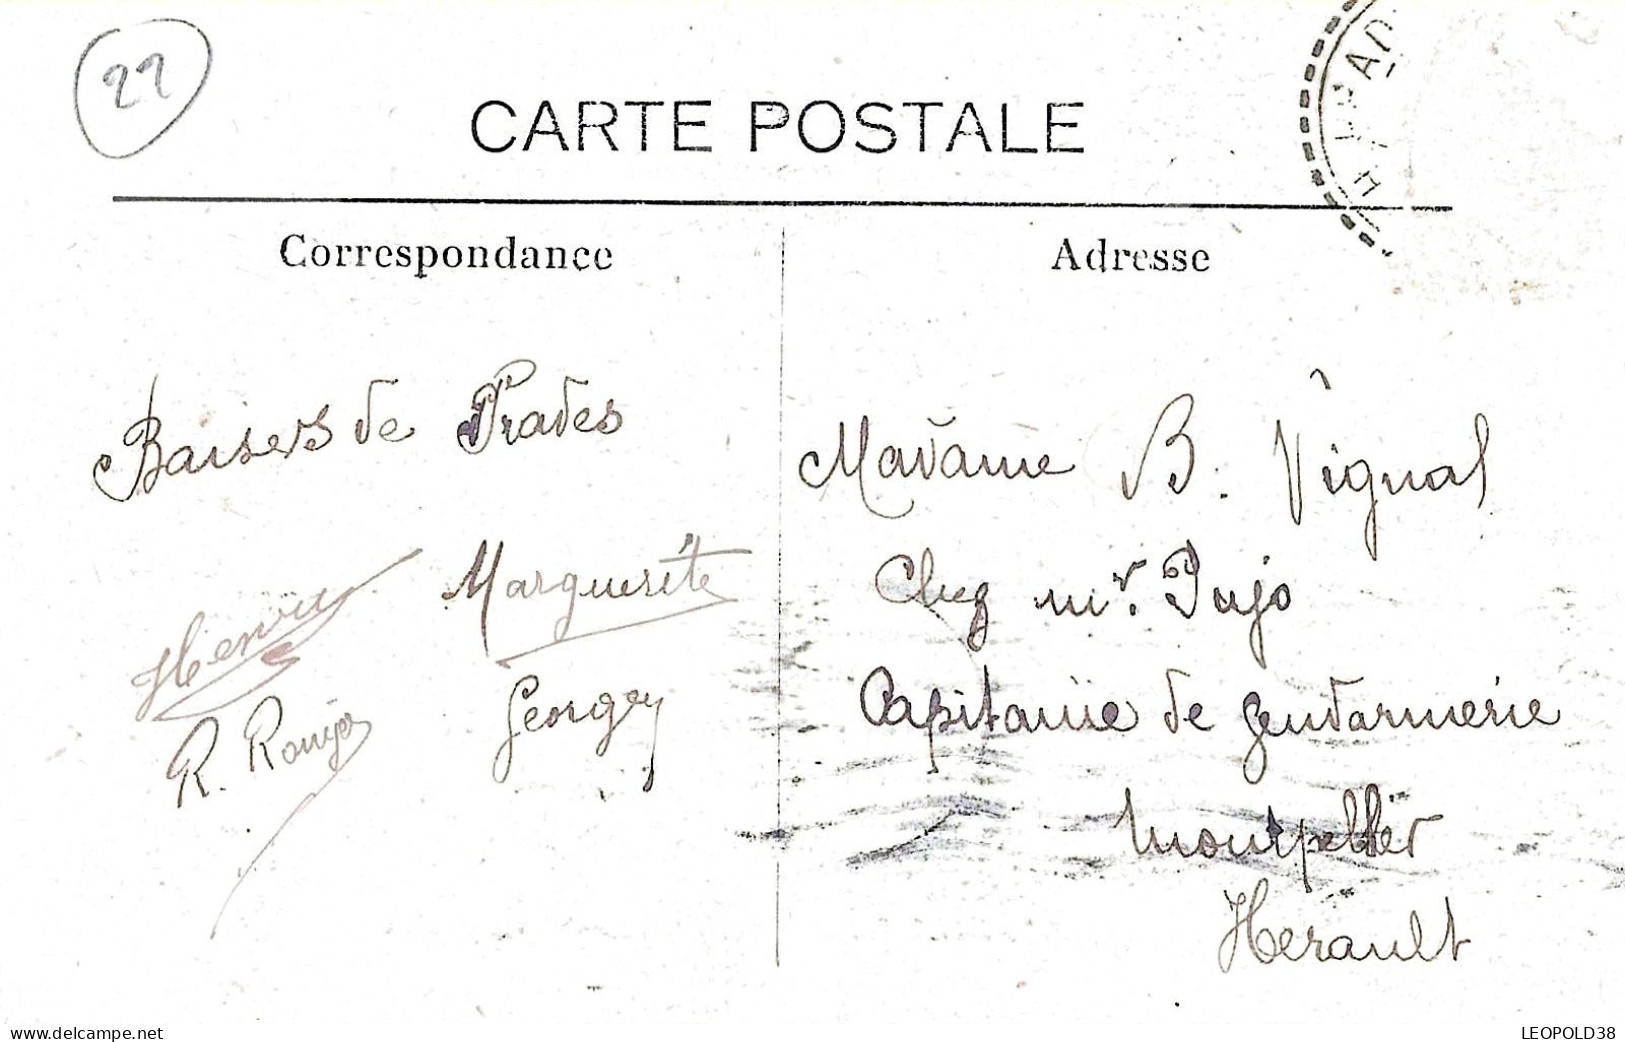 22
CARTE POSTALE
Correspondance
Adresse
Baisers de Prades
Henri
Marguerite
R. Rouger
Georgey
Madame B. Vignal
Chez mr. Pujo
Capitaine de gendarmerie
Montpellier
Herault
www.delcampe.net
LEOPOLD38